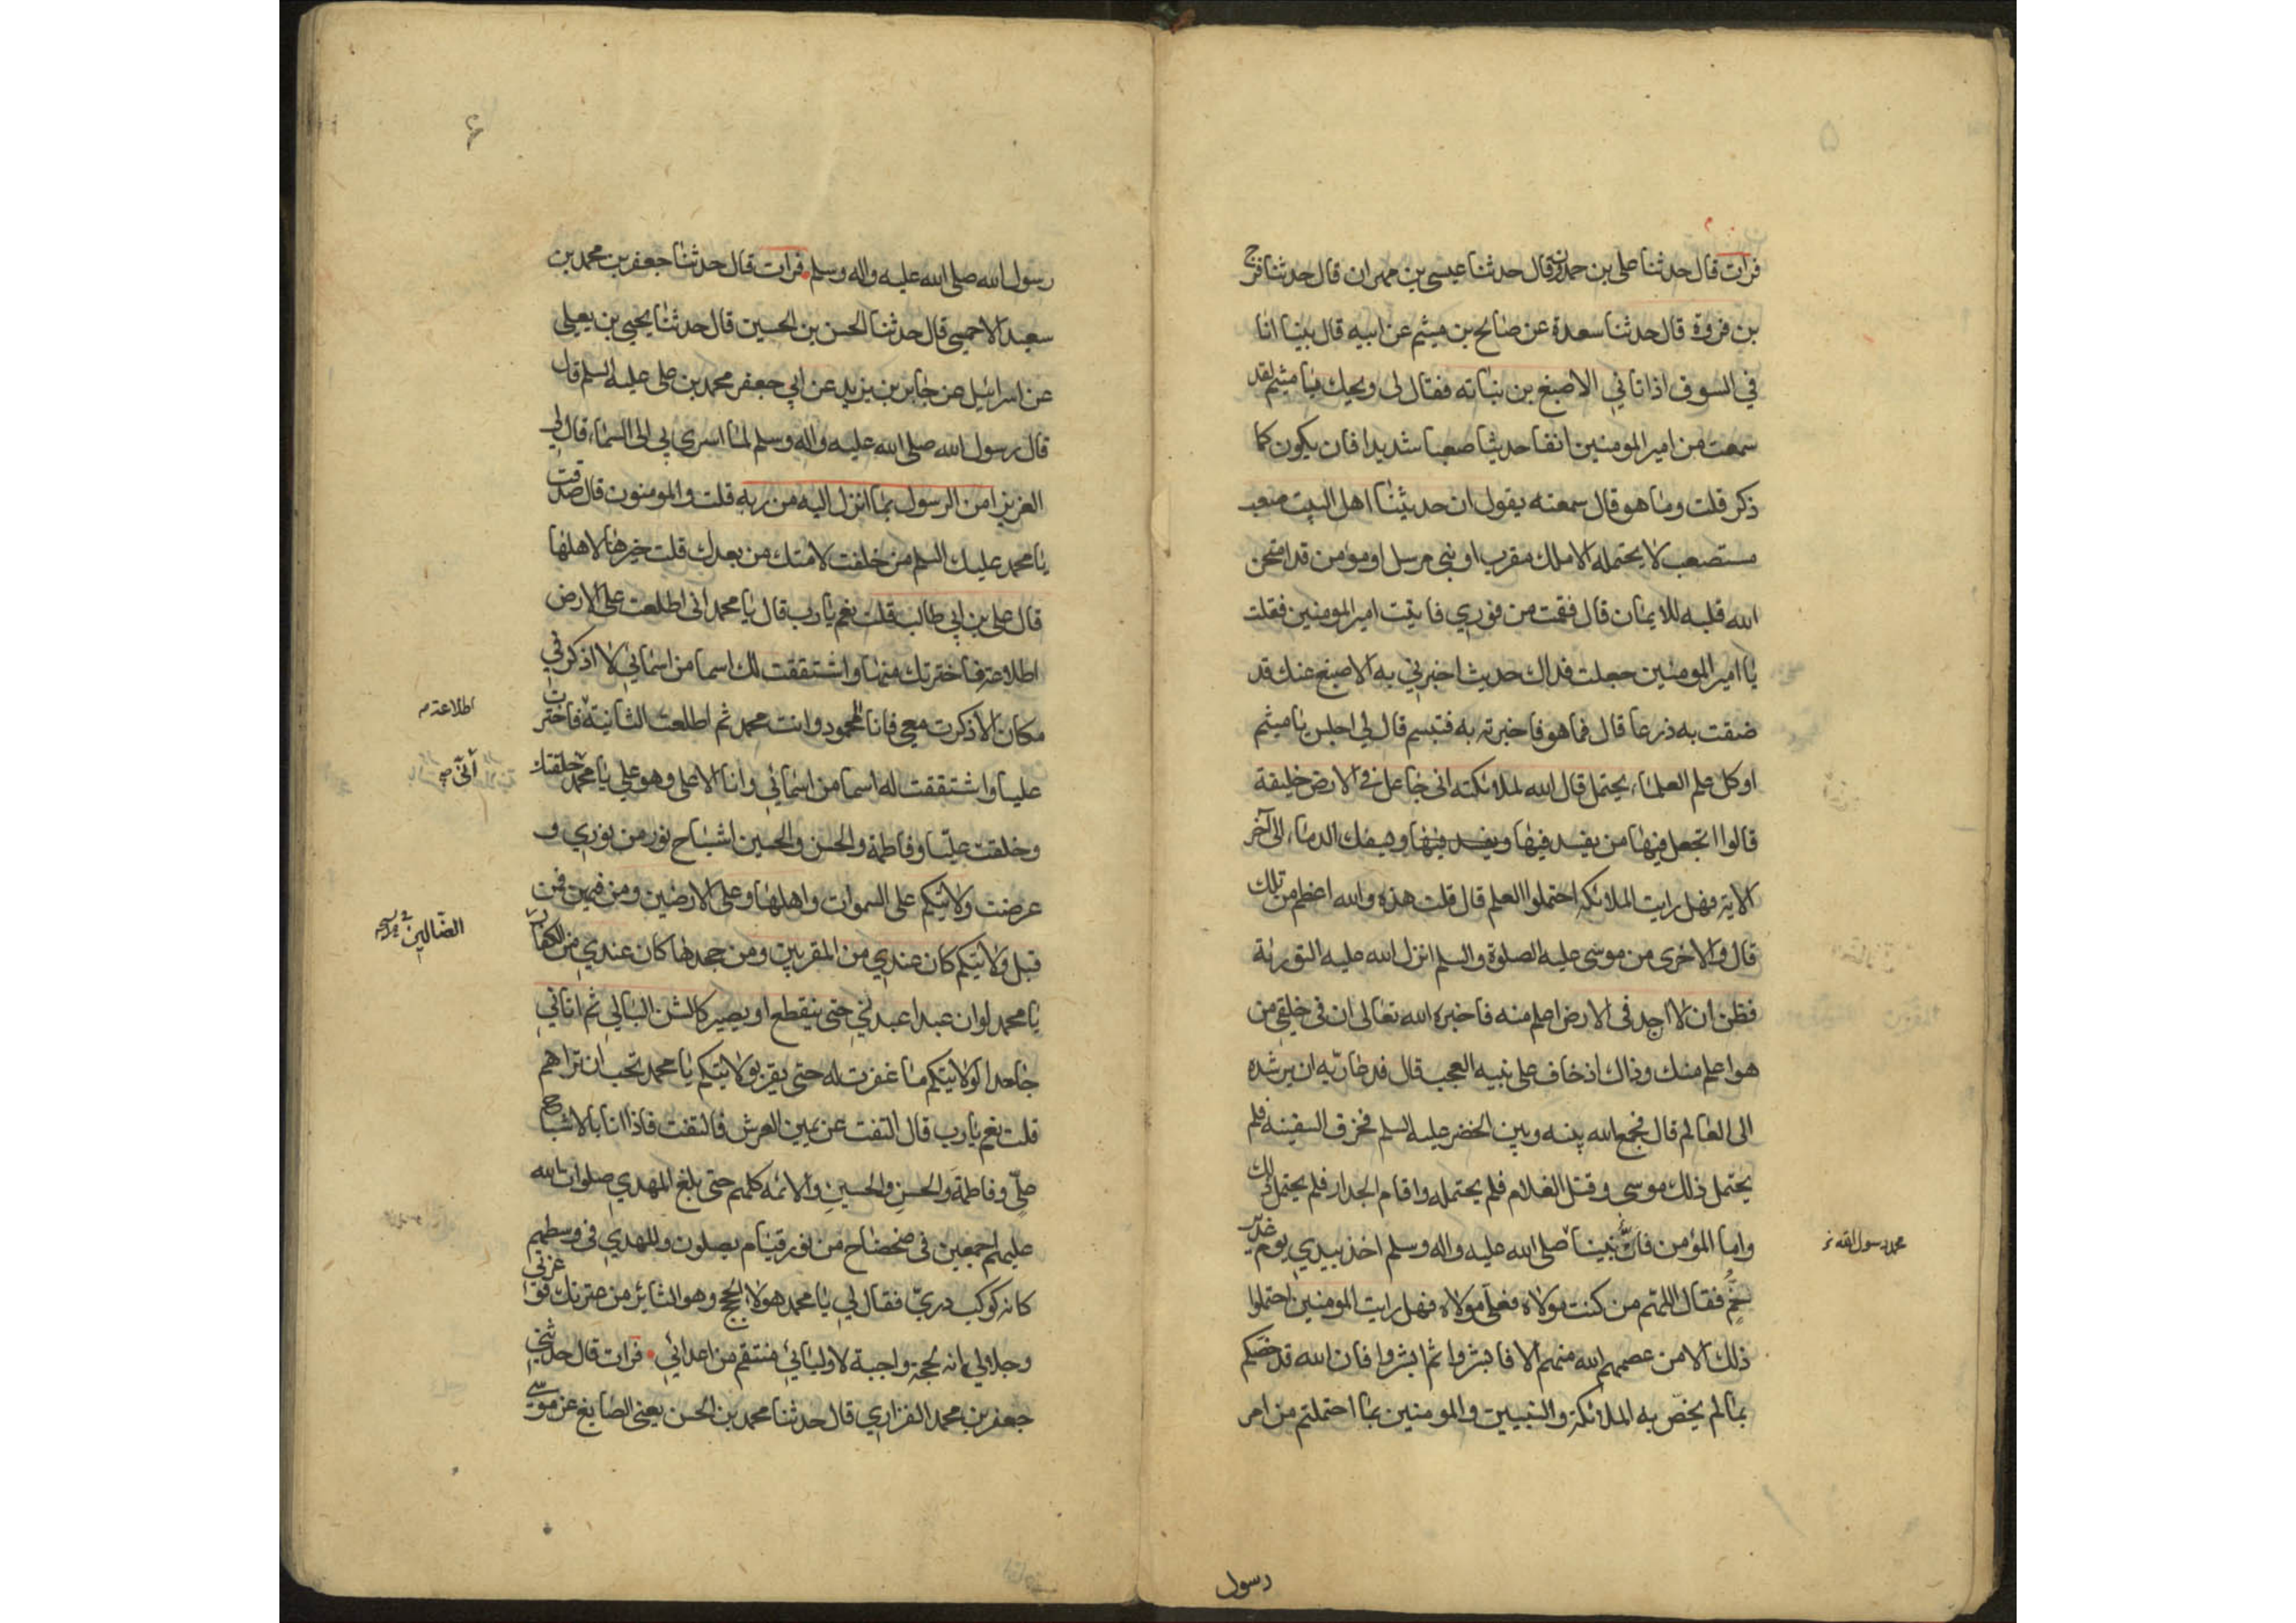 ٥
فرات قال حدثنا علي بن حمدون قال حدثنا عيسى بن مهران قال حدثنا فرج
بن فروة قال حدثنا سعدة عن صالح بن ميثم عن ابيه قال بينا انا
في السوق اذ اتاني الاصبغ بن نباته فقال لى ويحك يا ميثم لقد
سمعت من امير المومنين انفا حديثا صعبا شديدا فان يكون كما
ذكر قلت وما هو قال سمعته يقول ان حديثنا اهل البيت صعب
مستصعب لا يحتمله الا ملك مقرب او نبي مرسل او مومن قد امتحن
الله قلبه للايمان قال فقمت من فوري فاتيت امير المومنين فقلت
يا امير المومنين جعلت فداك حديث اخبرني به الاصبغ عنك قد
ضقت به ذرعا قال فما هو فاخبرته به فتبسم قال لي اجلس يا ميثم
او كل علم العلماء يحتمل قال الله لملائكته اني جاعل في الارض خليفة
قالوا اتجعل فيها من يفسد فيها ويفسد فيها ويسفك الدماء الى آخر
الاية فهل رايت الملائكة احتملوا العلم قال قلت هذه والله اعظم من تلك
قال والاخرى من موسى عليه الصلوة والسلم انزل الله عليه التورية
فظن ان لا احد فى الارض اعلم منه فاخبره الله تعالى ان فى خلقي من
هو اعلم منك وذاك اذ خاف على نبيه العجب قال فدعا ربه ان يرشده
الى العالم قال فجمع الله بينه وبين الخضر عليه السلم فخرق السفينة فلم
يحتمل ذلك موسى وقتل الغلام فلم يحتمله واقام الجدار فلم يحتمل ذلك
واما المؤمن فان نبينا صلى الله عليه واله وسلم اخذ بيدي يوم غدير
محمد رسول الله
خم فقال اللهم من كنت مولاه فعلي مولاه فهل رايت المومنين احتملوا
ذلك الا من عصمهم الله منهم الا فابشروا ثم ابشروا فان الله قد خصكم
بما لم يخص به الملائكة والنبيين والمومنين بما احتملتم من امر
رسول
٦
رسول الله صلى الله عليه واله وسلم فرات قال حدثنا جعفر بن محمد بن
سعيد الاحمسي قال حدثنا الحسن بن الحسين قال حدثنا يحيى بن يعلى
عن اسرائيل عن جابر بن يزيد عن ابي جعفر محمد بن علي عليه السلم قال
قال رسول الله صلى الله عليه واله وسلم لما اسرى بي الى السماء قال لي
العزيز امن الرسول بما انزل اليه من ربه قلت والمومنون قال صدقت
يا محمد عليك السلم من خلفت لامتك من بعدك قلت خيرها لاهلها
قال علي بن ابي طالب قلت نعم يا رب قال يا محمد اني اطلعت على الارض
اطلاعة فاخترتك منها واشتققت لك اسما من اسمائي لا اذكر في
مكان الا ذكرت معي فانا المحمود وانت محمد ثم اطلعت الثانية فاخترت
اطلاعة م
عليا واشتققت له اسما من اسمائي وانا الاعلى وهو علي يا محمد خلقتك
أني صح
وخلقت عليا وفاطمة والحسن والحسين اشباح نور من نوري و
عرضت ولايتكم على السموات واهلها وعلى الارضين ومن فيهن فمن
قبل ولايتكم كان عندي من المقربين ومن جحدها كان عندي من الكفار
الضالين
يا محمد لو ان عبدا عبدني حتى ينقطع او يصير كالشن البالي ثم اتاني
جاحدا لولايتكم ما غفرت له حتى يقر بولايتكم يا محمد تحب ان تراهم
قلت نعم يا رب قال التفت عن يمين العرش فالتفت فاذا انا بالاشباح
علي وفاطمة والحسن والحسين والائمة كلهم حتى بلغ المهدي صلوات الله
عليهم اجمعين فى ضحضاح من نور قيام يصلون والمهدي فى وسطهم
كانه كوكب دري فقال لي يا محمد هولاء الحجج وهو الثائر من عترتك فوعزتي
وجلالي انه لحجة واجبة لاوليائي منتقم من اعدائي فرات قال حدثني
جعفر بن محمد الفزاري قال حدثنا محمد بن الحسن يعني الصايغ عن موسى